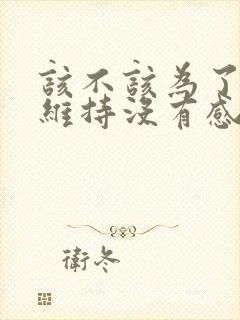 該不該為了
維持沒有感
衛冬